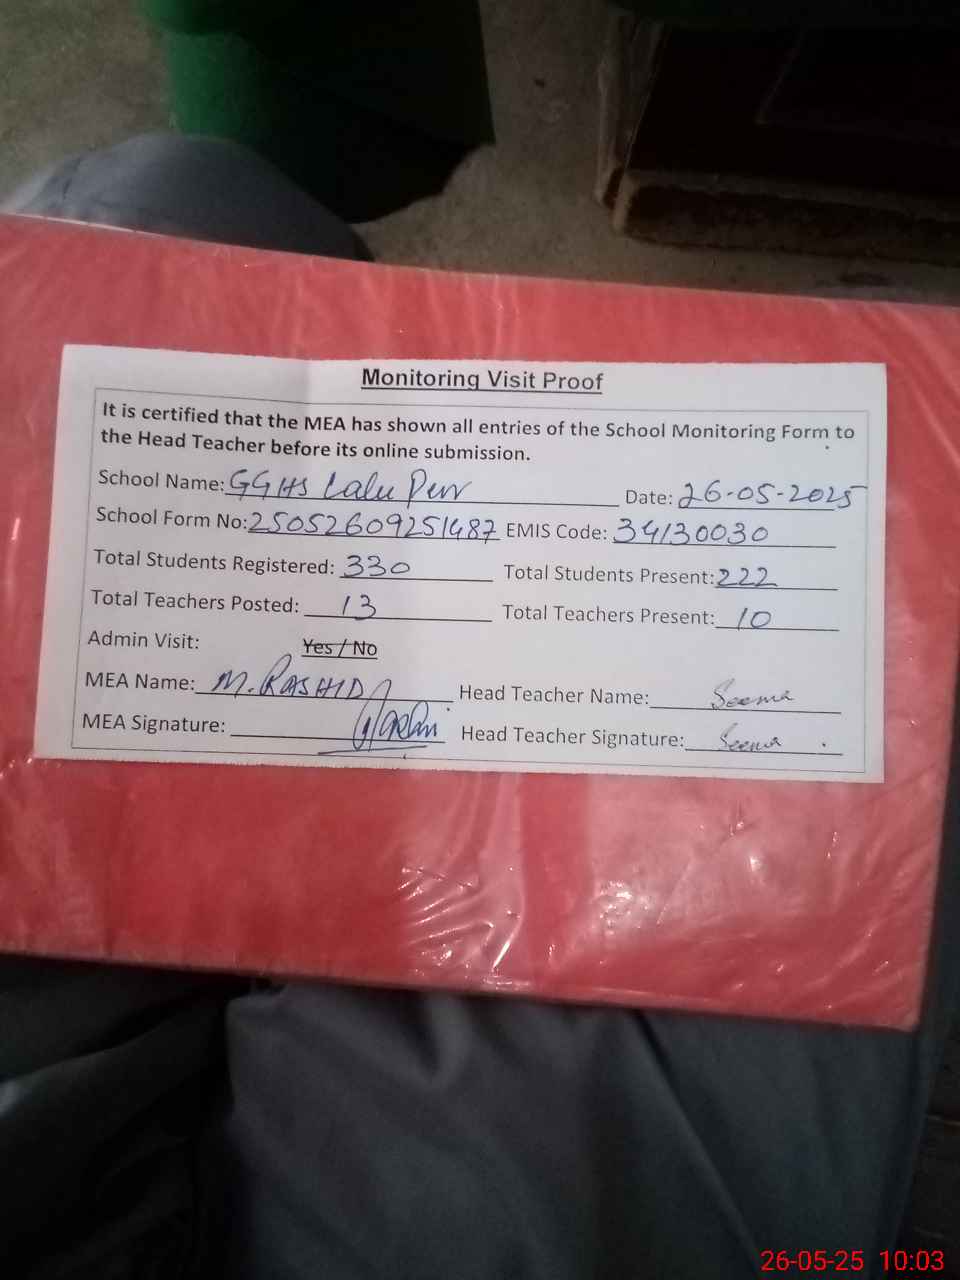 Monitoring Visit Proof
It is certified that the MEA has shown all entries of the School Monitoring Form to
the Head Teacher before its online submission.
School Name: GGHS Lalu Date: 26-05-2025
School Form No: 25052609251487 EMIS Code: 34130030
Total Students Registered: 330 Total Students Present: 222
Total Teachers Posted: 13 Total Teachers Present: 10
Admin Visit: Yes / No
MEA Name: M. RASHID Head Teacher Name: Seema
MEA Signature: Head Teacher Signature: Seema
26-05-25 10:03